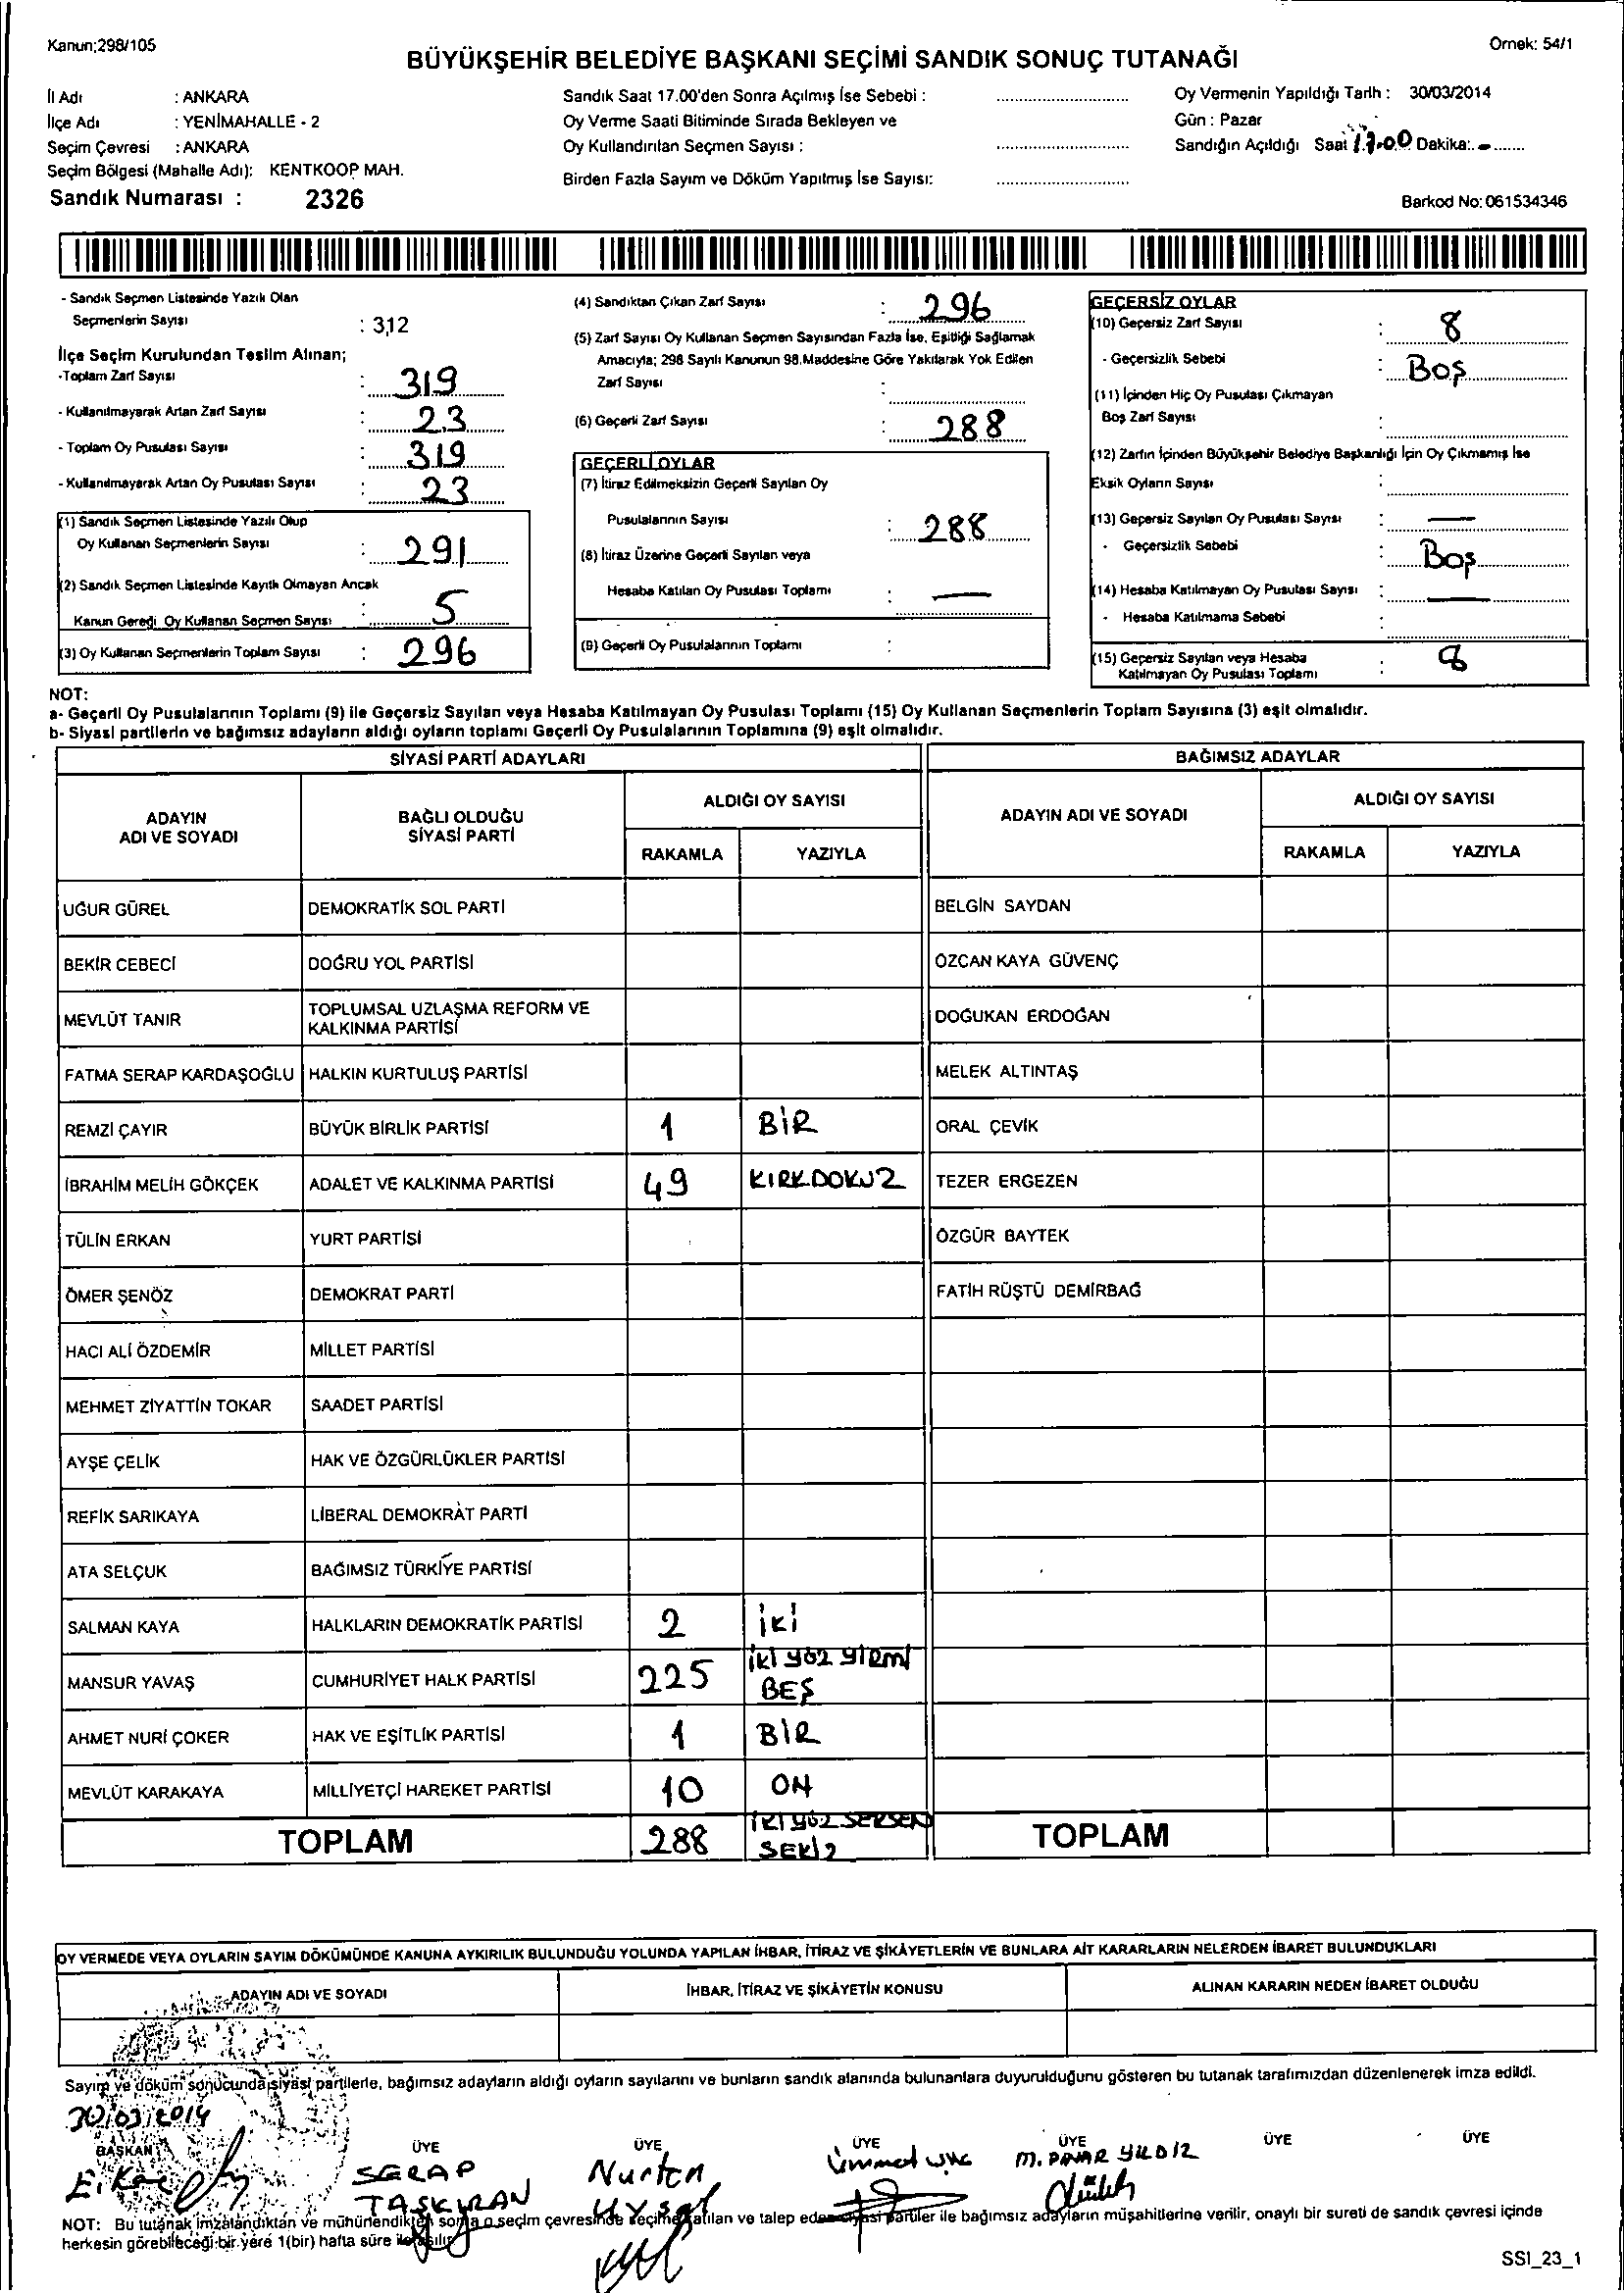 Kanun;298/105
Örnek: 54/1
BÜYÜKŞEHİR BELEDİYE BAŞKANI SEÇİMİ SANDIK SONUÇ TUTANAĞI
İl Adı : ANKARA
İlçe Adı : YENİMAHALLE - 2
Seçim Çevresi : ANKARA
Seçim Bölgesi (Mahalle Adı): KENTKOOP MAH.
Sandık Numarası : 2326
Sandık Saat 17.00'den Sonra Açılmış İse Sebebi :
Oy Verme Saati Bitiminde Sırada Bekleyen ve
Oy Kullandırılan Seçmen Sayısı :
Birden Fazla Sayım ve Döküm Yapılmış İse Sayısı:
Oy Vermenin Yapıldığı Tarih : 30/03/2014
Gün : Pazar
Sandığın Açıldığı Saat 17.00 Dakika: -
Barkod No: 061534346
- Sandık Seçmen Listesinde Yazılı Olan
Seçmenlerin Sayısı : 312
İlçe Seçim Kurulundan Teslim Alınan;
-Toplam Zarf Sayısı : 319
- Kullanılmayarak Artan Zarf Sayısı : 23
- Toplam Oy Pusulası Sayısı : 319
- Kullanılmayarak Artan Oy Pusulası Sayısı : 23
(1) Sandık Seçmen Listesinde Yazılı Olup
Oy Kullanan Seçmenlerin Sayısı : 291
(2) Sandık Seçmen Listesinde Kayıtlı Olmayan Ancak
Kanun Gereği Oy Kullanan Seçmen Sayısı : 5
(3) Oy Kullanan Seçmenlerin Toplam Sayısı : 296
(4) Sandıktan Çıkan Zarf Sayısı : 296
(5) Zarf Sayısı Oy Kullanan Seçmen Sayısından Fazla İse, Eşitliği Sağlamak
Amacıyla; 298 Sayılı Kanunun 98.Maddesine Göre Yakılarak Yok Edilen
Zarf Sayısı :
(6) Geçerli Zarf Sayısı : 288
GEÇERLİ OYLAR
(7) İtiraz Edilmeksizin Geçerli Sayılan Oy
Pusulalarının Sayısı : 288
(8) İtiraz Üzerine Geçerli Sayılan veya
Hesaba Katılan Oy Pusulası Toplamı : —
(9) Geçerli Oy Pusulalarının Toplamı :
GEÇERSİZ OYLAR
(10) Geçersiz Zarf Sayısı : 8
- Geçersizlik Sebebi : Boş
(11) İçinden Hiç Oy Pusulası Çıkmayan
Boş Zarf Sayısı :
(12) Zarfın İçinden Büyükşehir Belediye Başkanlığı İçin Oy Çıkmamış İse
Eksik Oyların Sayısı :
(13) Geçersiz Sayılan Oy Pusulası Sayısı : —
- Geçersizlik Sebebi : Boş
(14) Hesaba Katılmayan Oy Pusulası Sayısı : —
- Hesaba Katılmama Sebebi :
(15) Geçersiz Sayılan veya Hesaba
Katılmayan Oy Pusulası Toplamı : 8
NOT:
a- Geçerli Oy Pusulalarının Toplamı (9) ile Geçersiz Sayılan veya Hesaba Katılmayan Oy Pusulası Toplamı (15) Oy Kullanan Seçmenlerin Toplam Sayısına (3) eşit olmalıdır.
b- Siyasi partilerin ve bağımsız adayların aldığı oyların toplamı Geçerli Oy Pusulalarının Toplamına (9) eşit olmalıdır.
SİYASİ PARTİ ADAYLARI
BAĞIMSIZ ADAYLAR
ADAYIN
ADI VE SOYADI
BAĞLI OLDUĞU
SİYASİ PARTİ
ALDIĞI OY SAYISI
RAKAMLA YAZIYLA
ADAYIN ADI VE SOYADI
ALDIĞI OY SAYISI
RAKAMLA YAZIYLA
UĞUR GÜREL DEMOKRATİK SOL PARTİ BELGİN SAYDAN
BEKİR CEBECİ DOĞRU YOL PARTİSİ ÖZCAN KAYA GÜVENÇ
MEVLÜT TANIR TOPLUMSAL UZLAŞMA REFORM VE
KALKINMA PARTİSİ DOĞUKAN ERDOĞAN
FATMA SERAP KARDAŞOĞLU HALKIN KURTULUŞ PARTİSİ MELEK ALTINTAŞ
REMZİ ÇAYIR BÜYÜK BİRLİK PARTİSİ 1 BİR ORAL ÇEVİK
İBRAHİM MELİH GÖKÇEK ADALET VE KALKINMA PARTİSİ 49 KIRKDOKUZ TEZER ERGEZEN
TÜLİN ERKAN YURT PARTİSİ ÖZGÜR BAYTEK
ÖMER ŞENÖZ DEMOKRAT PARTİ FATİH RÜŞTÜ DEMİRBAĞ
HACI ALİ ÖZDEMİR MİLLET PARTİSİ
MEHMET ZİYATTİN TOKAR SAADET PARTİSİ
AYŞE ÇELİK HAK VE ÖZGÜRLÜKLER PARTİSİ
REFİK SARIKAYA LİBERAL DEMOKRAT PARTİ
ATA SELÇUK BAĞIMSIZ TÜRKİYE PARTİSİ
SALMAN KAYA HALKLARIN DEMOKRATİK PARTİSİ 2 İKİ
MANSUR YAVAŞ CUMHURİYET HALK PARTİSİ 225 İKİ YÜZ YİRMİ
BEŞ
AHMET NURİ ÇOKER HAK VE EŞİTLİK PARTİSİ 1 BİR
MEVLÜT KARAKAYA MİLLİYETÇİ HAREKET PARTİSİ 10 ON
TOPLAM 288 İKİ YÜZ SEKSEN
SEKİZ
TOPLAM
OY VERMEDE VEYA OYLARIN SAYIM DÖKÜMÜNDE KANUNA AYKIRILIK BULUNDUĞU YOLUNDA YAPILAN İHBAR, İTİRAZ VE ŞİKÂYETLERİN VE BUNLARA AİT KARARLARIN NELERDEN İBARET BULUNDUKLARI
ADAYIN ADI VE SOYADI İHBAR, İTİRAZ VE ŞİKÂYETİN KONUSU ALINAN KARARIN NEDEN İBARET OLDUĞU
Sayım ve döküm sonucunda siyasi partilerle, bağımsız adayların aldığı oyların sayılarını ve bunların sandık alanında bulunanlara duyurulduğunu gösteren bu tutanak tarafımızdan düzenlenerek imza edildi.
30/03/2014
BAŞKAN ÜYE ÜYE ÜYE ÜYE ÜYE ÜYE
SERAP
TAŞKIRAN
Nurten
Uysal
Ümmet
M. PINAR YILDIZ
NOT: Bu tutanak imzalandıktan ve mühürlendikten sonra o seçim çevresinde seçime katılan ve talep eden siyasi partiler ile bağımsız adayların müşahitlerine verilir, onaylı bir sureti de sandık çevresi içinde
herkesin görebileceği bir yere 1(bir) hafta süre ile asılır.
SSI_23_1